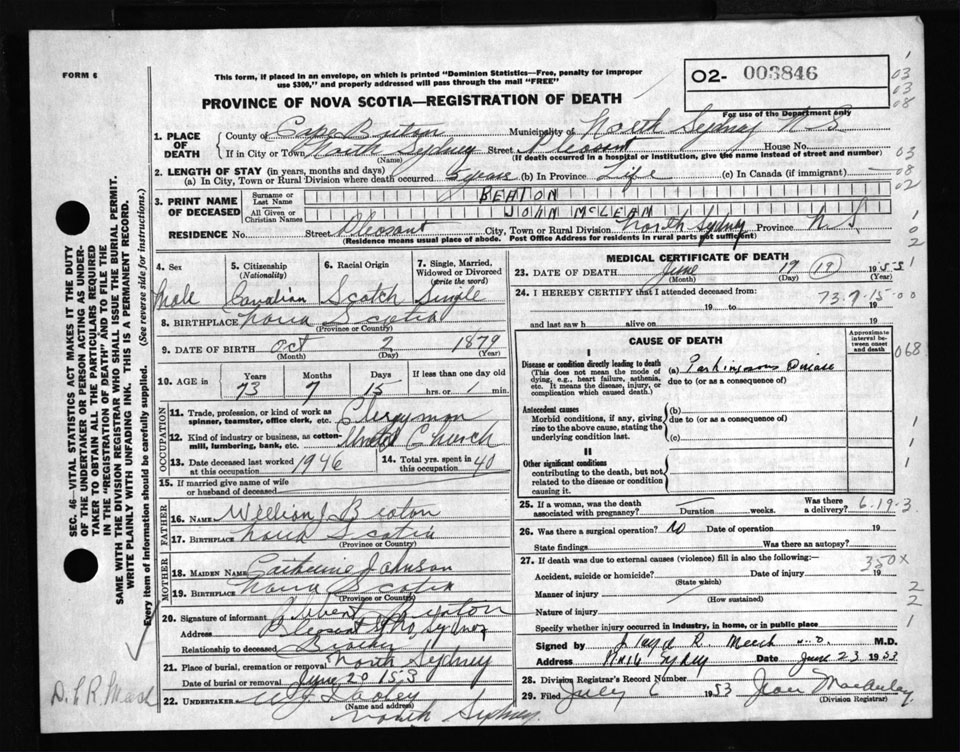 FORM 6
This form, if placed in an envelope, on which is printed "Dominion Statistics—Free, penalty for improper
use $300," and properly addressed will pass through the mail "FREE"
O2- 003846
For use of the Department only
PROVINCE OF NOVA SCOTIA—REGISTRATION OF DEATH
1. PLACE OF DEATH
County of Cape Breton Municipality of North Sydney N S
If in City or Town North Sydney Street Pleasant House No.
(Name) (If death occurred in a hospital or institution, give the name instead of street and number)
2. LENGTH OF STAY (in years, months and days)
(a) In City, Town or Rural Division where death occurred 6 years (b) In Province Life (c) In Canada (if immigrant)
3. PRINT NAME OF DECEASED
Surname or Last Name BEATON
All Given or Christian Names JOHN McLEAN
RESIDENCE No. Street Pleasant City, Town or Rural Division North Sydney Province N. S.
(Residence means usual place of abode. Post Office Address for residents in rural parts not sufficient)
4. Sex
Male
5. Citizenship
(Nationality)
Canadian
6. Racial Origin
Scotch
7. Single, Married, Widowed or Divorced
(write the word)
Single
8. BIRTHPLACE Nova Scotia
(Province or Country)
9. DATE OF BIRTH Oct 2 1879
(Month) (Day) (Year)
10. AGE in
Years Months Days If less than one day old
73 7 15 hrs. or min.
OCCUPATION
11. Trade, profession, or kind of work as
spinner, teamster, office clerk, etc. Clergyman
12. Kind of industry or business, as cotton-
mill, lumbering, bank, etc. United Church
13. Date deceased last worked
at this occupation 1946
14. Total yrs. spent in
this occupation 40
15. If married give name of wife
or husband of deceased
FATHER
16. NAME William J Beaton
17. BIRTHPLACE Nova Scotia
(Province or Country)
MOTHER
18. MAIDEN NAME Catherine Johnson
19. BIRTHPLACE Nova Scotia
(Province or Country)
20. Signature of informant Beaton
Address Pleasant St No. Sydney
Relationship to deceased Brother
21. Place of burial, cremation or removal North Sydney
Date of burial or removal June 20 1953
22. UNDERTAKER
(Name and address)
North Sydney.
MEDICAL CERTIFICATE OF DEATH
23. DATE OF DEATH June 19 (19) 1953
(Month) (Day) (Year)
24. I HEREBY CERTIFY that I attended deceased from:
19 to 19
73.7.15.00
and last saw h alive on 19
CAUSE OF DEATH
Approximate interval between onset and death
I
Disease or condition directly leading to death
(This does not mean the mode of
dying, e.g., heart failure, asthenia,
etc. It means the disease, injury, or
complication which caused death.)
(a) Parkinsons Disease
due to (or as a consequence of)
Antecedent causes
Morbid conditions, if any, giving
rise to the above cause, stating the
underlying condition last.
(b)
due to (or as a consequence of)
(c)
II
Other significant conditions
contributing to the death, but not
related to the disease or condition
causing it.
25. If a woman, was the death
associated with pregnancy? Duration weeks. Was there a delivery?
6.19.3
26. Was there a surgical operation? No Date of operation 19
State findings Was there an autopsy?
27. If death was due to external causes (violence) fill in also the following:—
350X
Accident, suicide or homicide? Date of injury 19
(State which)
Manner of injury
(How sustained)
Nature of injury
Specify whether injury occurred in industry, in home, or in public place
Signed by M.D.
Address North Sydney Date June 23 1953
28. Division Registrar's Record Number
29. Filed July 6 1953 Jean MacAulay
(Division Registrar)
SEC. 46—VITAL STATISTICS ACT MAKES IT THE DUTY
OF THE UNDERTAKER OR PERSON ACTING AS UNDER-
TAKER TO OBTAIN ALL THE PARTICULARS REQUIRED
IN THE "REGISTRATION OF DEATH" AND TO FILE THE
SAME WITH THE DIVISION REGISTRAR WHO SHALL ISSUE THE BURIAL PERMIT.
WRITE PLAINLY WITH UNFADING INK. THIS IS A PERMANENT RECORD.
Every item of information should be carefully supplied. (See reverse side for instructions.)
1
03
03
08
03
08
02
1
0
02
068
1
1
2
2
1